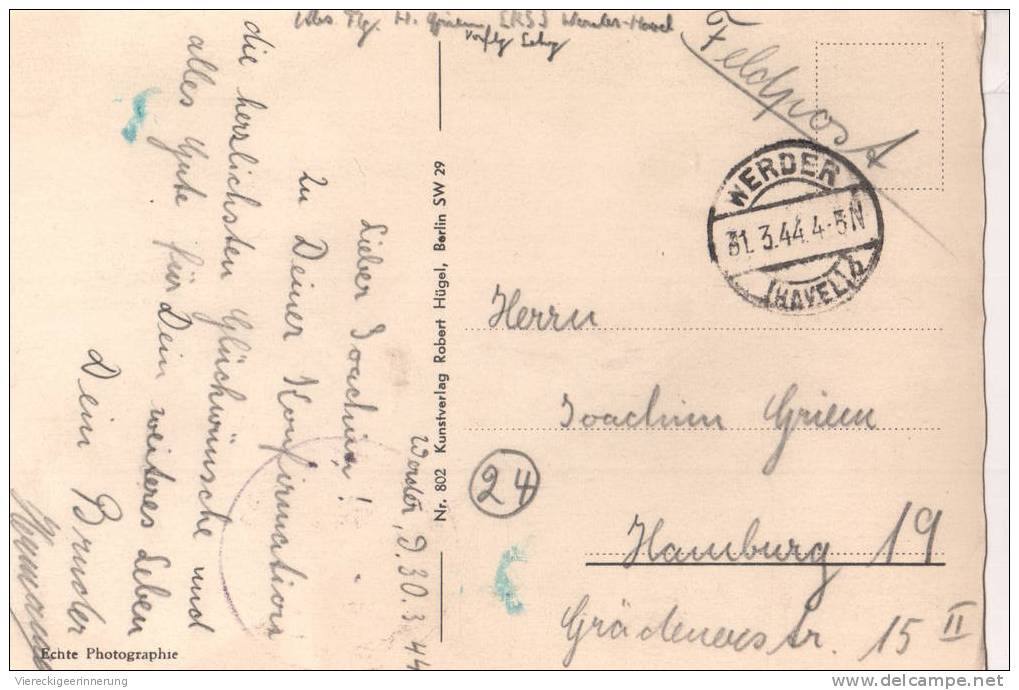 Abs. Flg. H. Griem, Werder-Havel
Feldpost
WERDER
31.3.44.4-5N
(HAVEL) b
Werder, D. 30.3.44
Lieber Joachim!
Zu Deiner Konfirmation
die herzlichsten Glückwünsche und
alles Gute für Dein weiteres Leben
Dein Bruder
Hermann
Echte Photographie
Nr. 802 Kunstverlag Robert Hügel, Berlin SW 29
Herrn
Joachim Griem
24
Hamburg 19
Grädenerstr. 15 II
Viereckigeerinnerung
delcampe.net